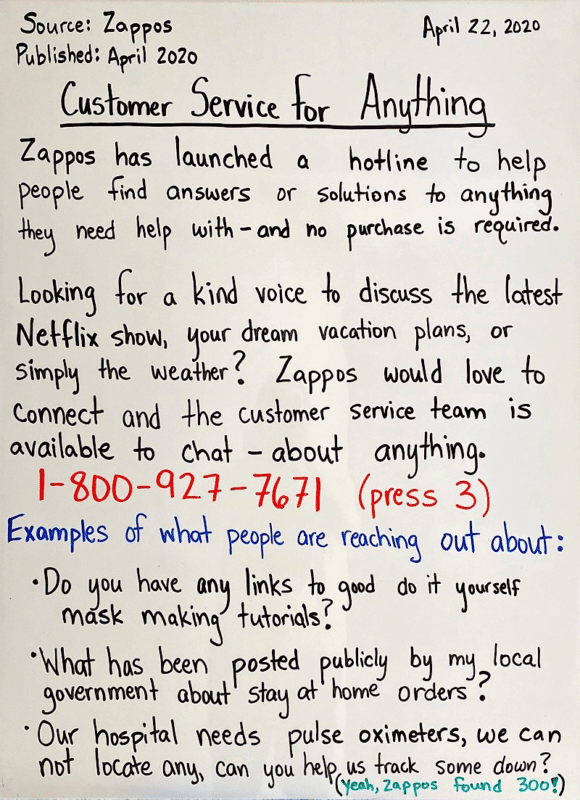 Source: Zappos
April 22, 2020
Published: April 2020
Customer Service for Anything
Zappos has launched a hotline to help
people find answers or solutions to anything
they need help with - and no purchase is required.
Looking for a kind voice to discuss the latest
Netflix show, your dream vacation plans, or
simply the weather? Zappos would love to
connect and the customer service team is
available to chat - about anything.
1-800-927-7671 (press 3)
Examples of what people are reaching out about:
• Do you have any links to good do it yourself
mask making tutorials?
• What has been posted publicly by my local
government about stay at home orders?
• Our hospital needs pulse oximeters, we can
not locate any, can you help us track some down?
(Yeah, Zappos found 300!)